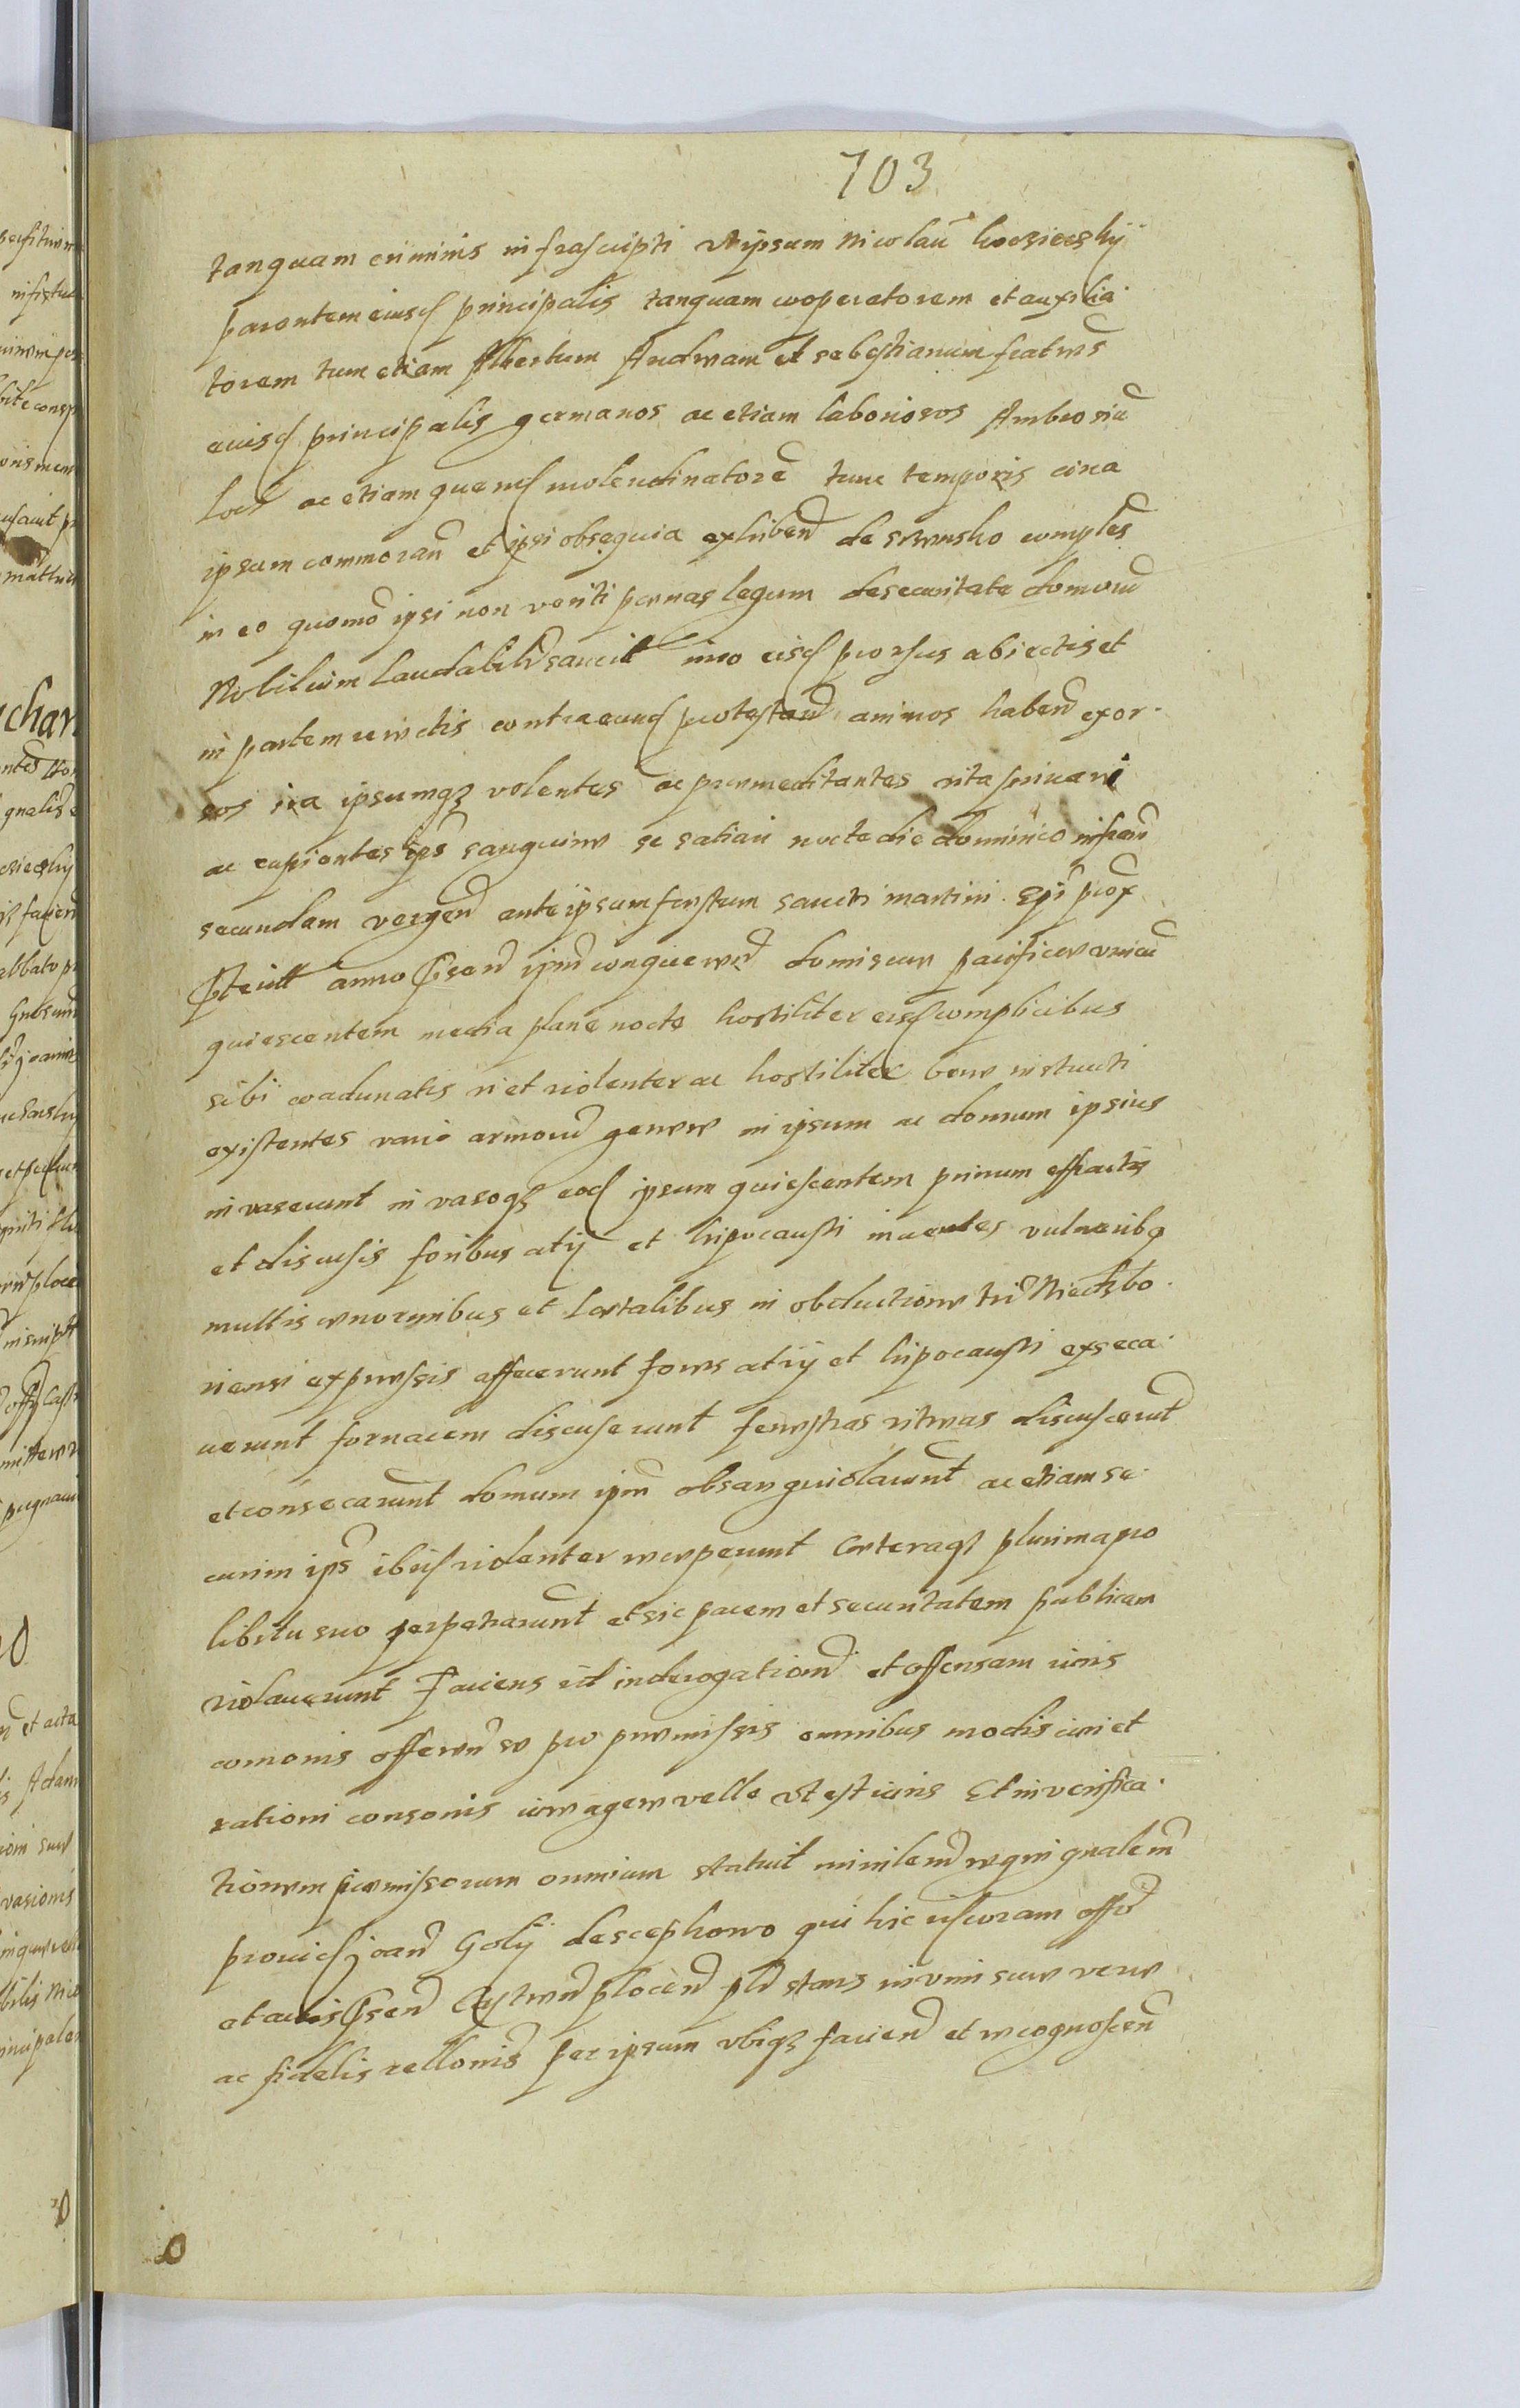 703
tanquam criminis infrascripti vt ipsum Nicolaũ
parentem eiusd principalis tanquam cooperatorem et auxilia
torem tum etiam Albertum Andream et sebestianum fratres
euisd principalis germanos ac etiam laboriosos Ambrosiũ
ac etiam quend molendinatorẽ tunc temporis circa
ipsum commoran et ipsi obsequia exhiben de comples
in eo quomo ipsi non veriti pœnas legum de securitate domorũ
Nobilium laudabilr sancit imo eisd prorsus abiectis et
in partem reiectis contra eund protestan animos haben exor
sos ira ipsumqз volentes ac præmeditantes vita privari
ac cupientes ips sanguine se satiari nocte die dominico
secundam vergen ante ipsum festum sancti martini Epi prox
anno domi suæ pacifice
quiescentem media plane nocte hostiliter eisd complicibus
sibi coadunatis vi et violenter ac hostiliter bene instructi
existentes vario armorũ genere in ipsum ac domum ipsius
invaserunt invasoqз eod ipsum quiescentem primum effractis
et discusis foribus atrij et hipocausti vulneribq
multis enormibus et lætalibus in obductione
expressis affecerunt fores atrij et hipocausti exseca
uerunt fornacem discuserunt fenestras vitreas discuserunt
et consecarunt domum ipiũ obsanguidarunt ac etiam se
curim ips ibid violenter receperunt Cæteraqз plurima pro
libitu suo perpetrarunt et sic pacem et securitatem publicam
violauerunt Faciens id in derogationẽ et offensam iuris
comonis offeren se pro præmissis omnibus modis iuri et
rationi consonis iure agere velle vt est iuris Et in verifica
tionem præmissorum omnium statuit ministen regni gnalem
prouid joan Golij de qui hic coram offo
et actis ñsen Castren plocen pln stans in vim suæ veræ
ac fidelis rellonis per ipsum vbiqз facien et recognoscen